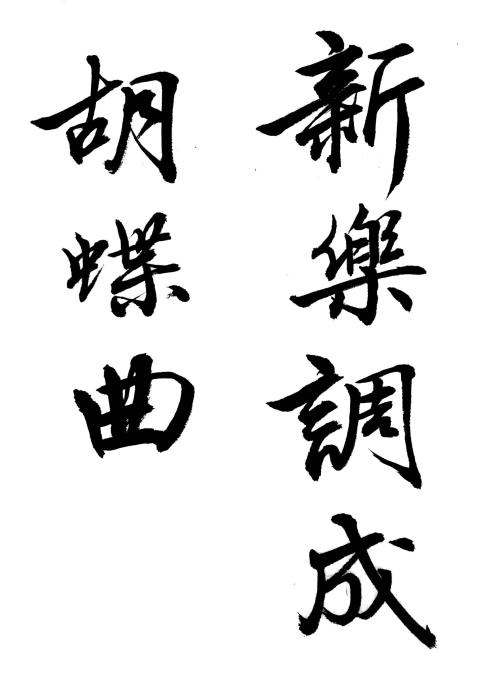 新樂調成
胡蝶曲